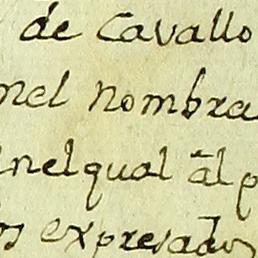 de Cavallo
nel nombra
nelqual āl p
os expresados